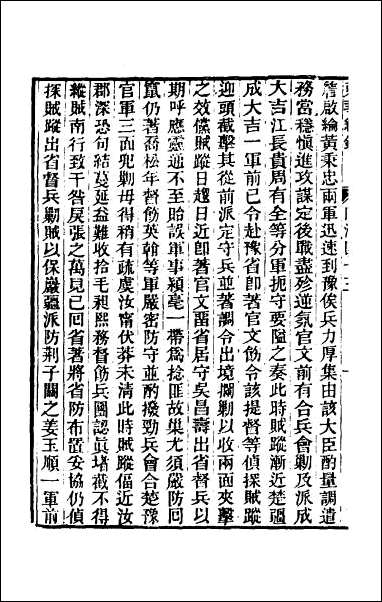 詹啟綸黃秉忠兩軍迅速到豫俟兵力厚集由該大臣酌量調遣
務當穩愼進攻謀定後戰盡殄逆氛官文前有合兵會剿及派成
大吉江長貴周有全等分軍扼守要隘之奏此時賊蹤漸近楚疆
成大吉一軍前已令赴豫省卽著官文飭令該提督等偵探賊蹤
迎頭截擊其從前派定守兵並著調令出境攔剿以收兩面夾擊
之效儻賊蹤日趨日近卽著官文畱省居守吳昌壽出省督兵以
期呼應靈通不至貽誤軍事潁亳一帶爲捻匪故巢尤須嚴防回
竄仍著喬松年督飭英翰等軍嚴密防守並酌撥勁兵會合楚豫
官軍三面兜剿毋得稍有疏虞汝甯伏莽未清此時賊蹤偪近汝
郡深恐句結蔓延益難收拾毛昶熙務督飭兵團認眞堵截不得
縱賊南行致干咎戾張之萬見已回省著將省防布置妥協仍偵
探賊蹤出省督兵剿賊以保嚴疆派防荊子關之姜玉順一軍前